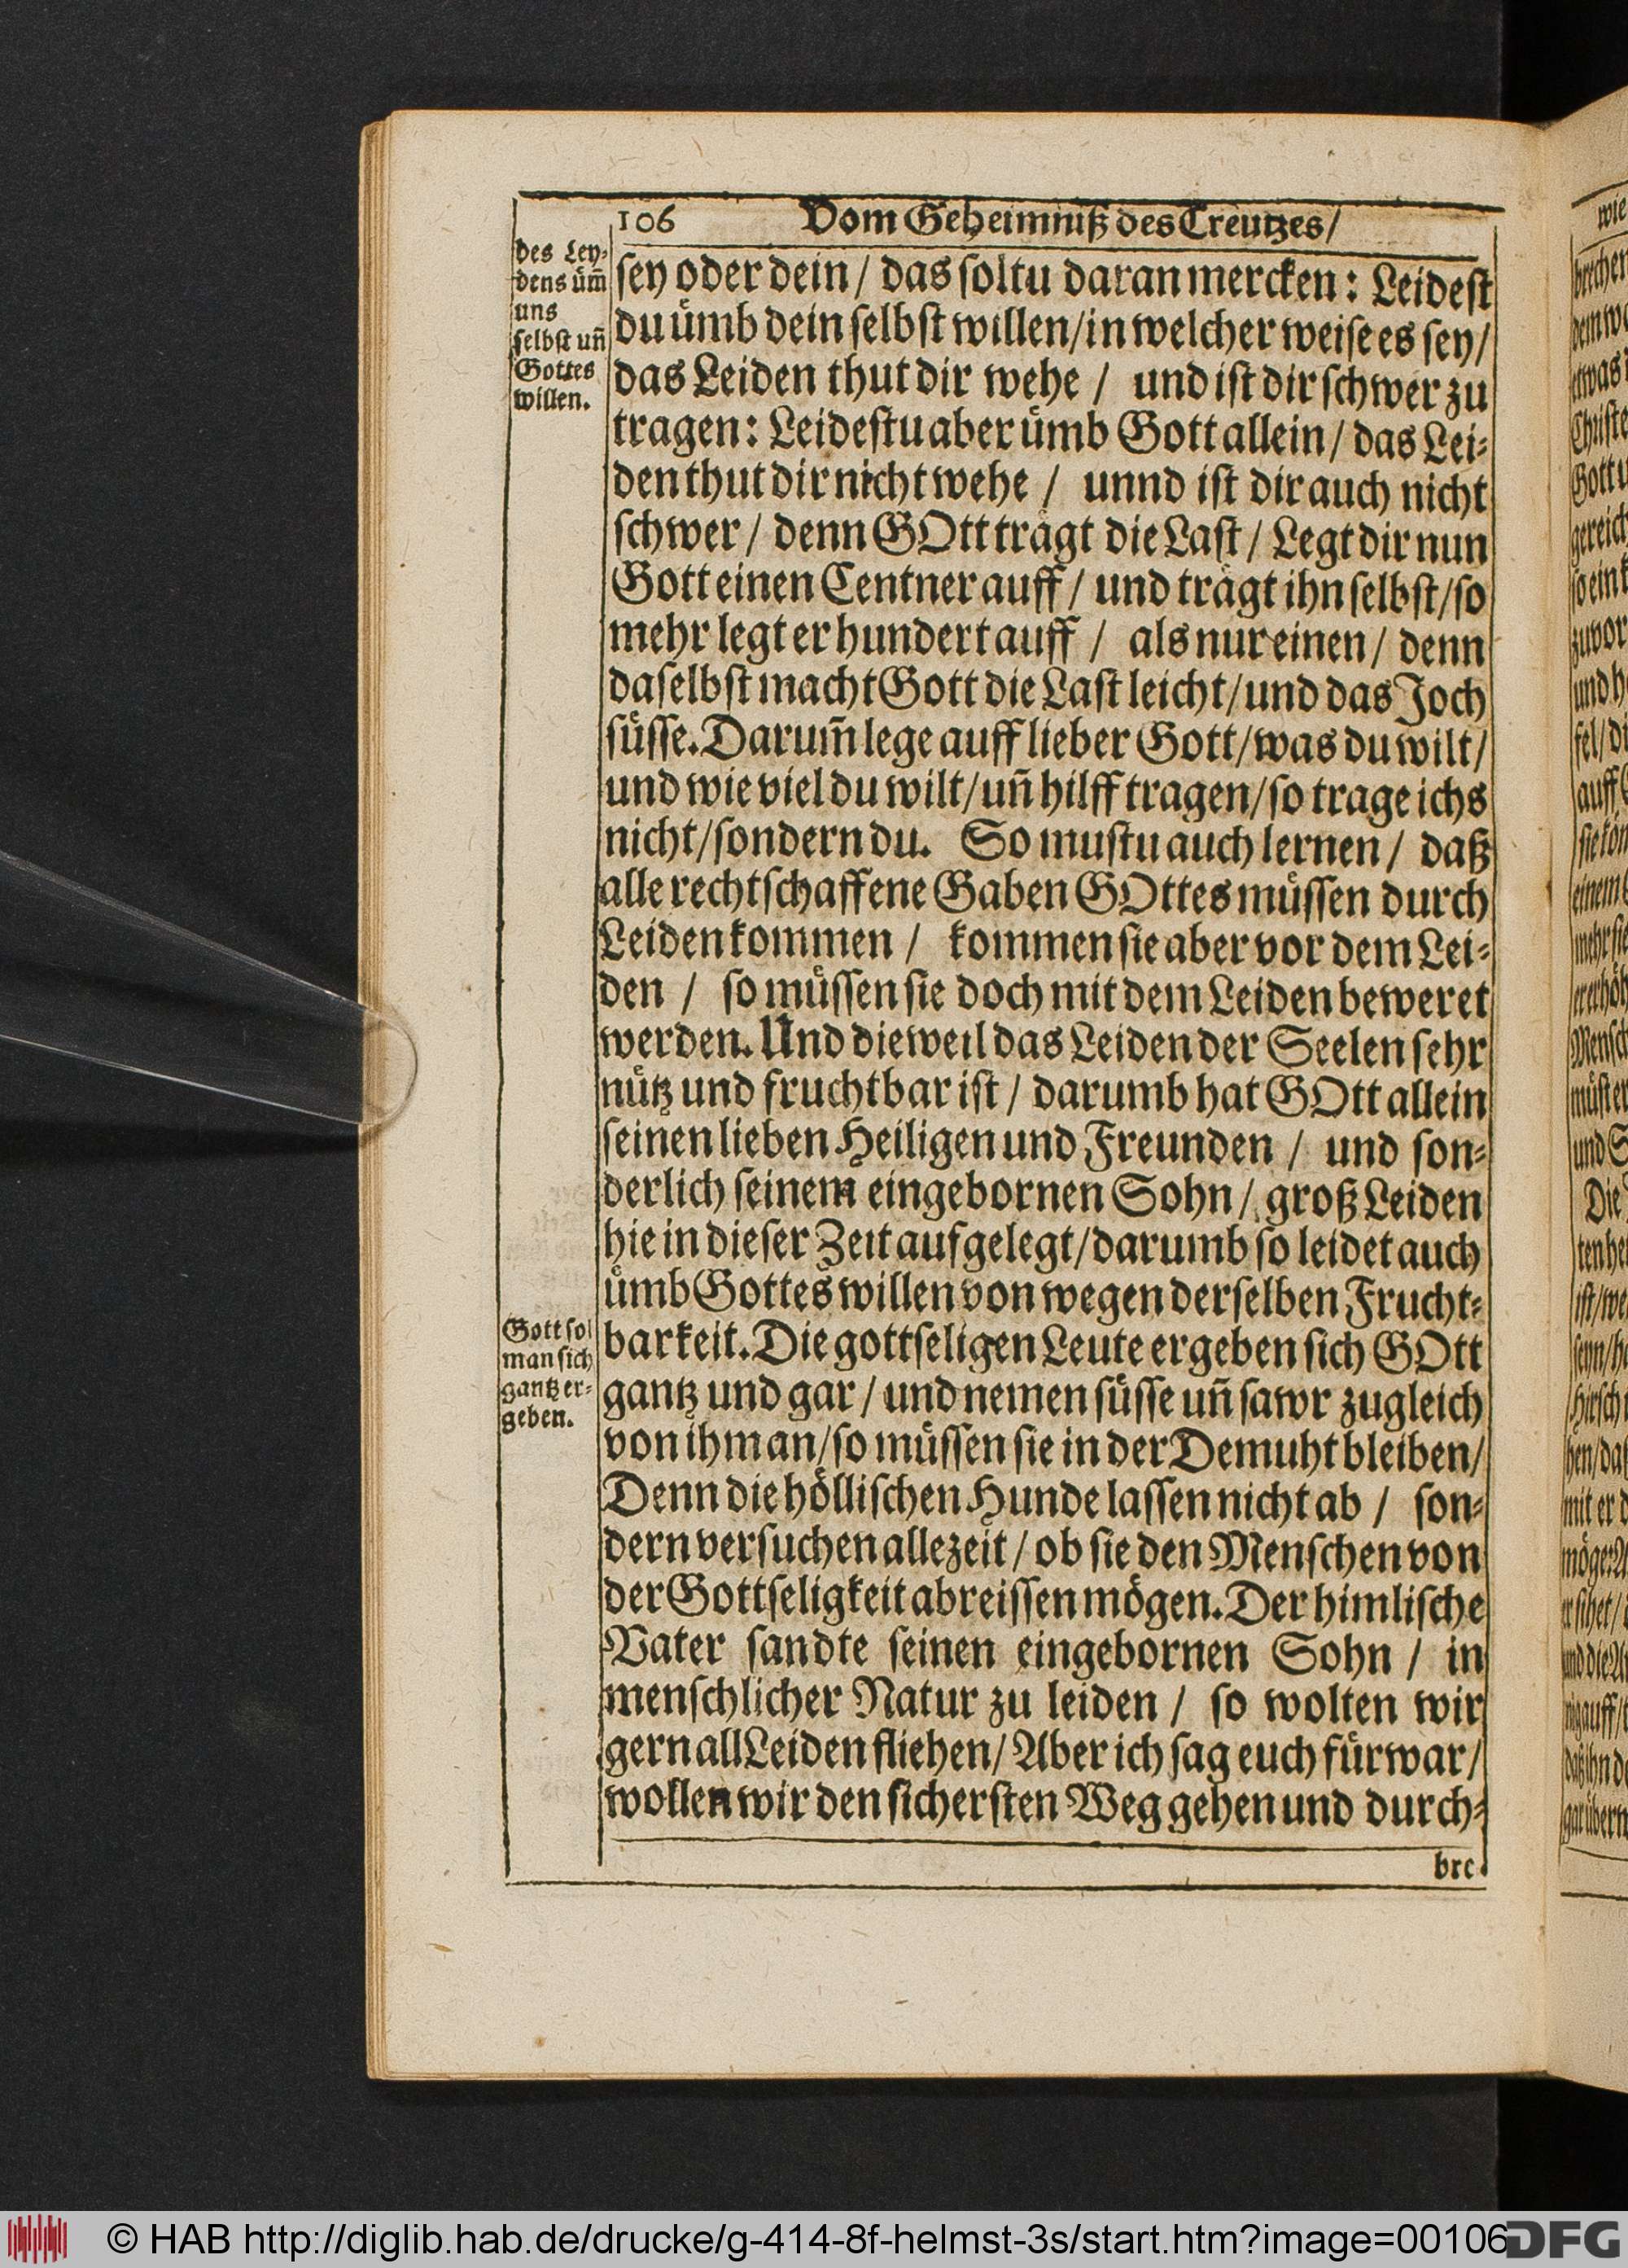 106 Vom Geheimniß des Creutzes/
des Ley-
dens üm̃
uns
selbst uñ
Gottes
willen.
sey oder dein / das soltu daran mercken: Leidest
du ümb dein selbst willen/in welcher weise es sey/
das Leiden thut dir wehe / und ist dir schwer zu
tragen: Leidestu aber ümb Gott allein/ das Lei-
den thut dir nicht wehe / unnd ist dir auch nicht
schwer/ denn GOtt trägt die Last/ Legt dir nun
Gott einen Centner auff/ und trägt ihn selbst/so
mehr legt er hundert auff / als nur einen/ denn
daselbst macht Gott die Last leicht/und das Joch
süsse. Darum̃ lege auff lieber Gott/was du wilt/
und wie viel du wilt/uñ hilff tragen/so trage ichs
nicht/sondern du. So mustu auch lernen/ daß
alle rechtschaffene Gaben GOttes müssen durch
Leiden kommen / kommen sie aber vor dem Lei-
den / so müssen sie doch mit dem Leiden beweret
werden. Und dieweil das Leiden der Seelen sehr
nütz und fruchtbar ist/ darumb hat GOtt allein
seinen lieben Heiligen und Freunden / und son-
derlich seinem eingebornen Sohn/ groß Leiden
hie in dieser Zeit aufgelegt/darumb so leidet auch
ümb Gottes willen von wegen derselben Frucht-
barkeit. Die gottseligen Leute ergeben sich GOtt
gantz und gar/ und nemen süsse uñ sawr zugleich
von ihm an/so müssen sie in der Demuht bleiben/
Denn die höllischen Hunde lassen nicht ab / son-
dern versuchen allezeit/ ob sie den Menschen von
der Gottseligkeit abreissen mögen. Der himlische
Vater sandte seinen eingebornen Sohn / in
menschlicher Natur zu leiden / so wolten wir
gern all Leiden fliehen/ Aber ich sag euch fürwar/
wollen wir den sichersten Weg gehen und durch-
Gott sol
man sich
gantz er-
geben.
bre-
© HAB http://diglib.hab.de/drucke/g-414-8f-helmst-3s/start.htm?image=00106
DFG